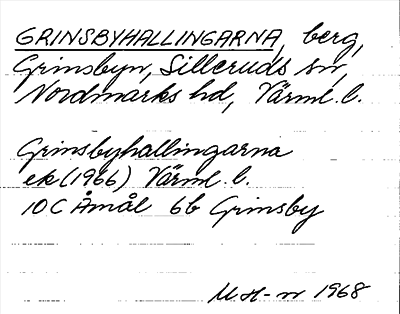 GRINSBYHALLINGARNA, berg,
Grinsbyn, Silleruds sn,
Nordmarks hd, Värml. l.
Grinsbyhallingarna
ek (1966) Värml. l.
10C Åmål 6b Grinsby
M H-m 1968